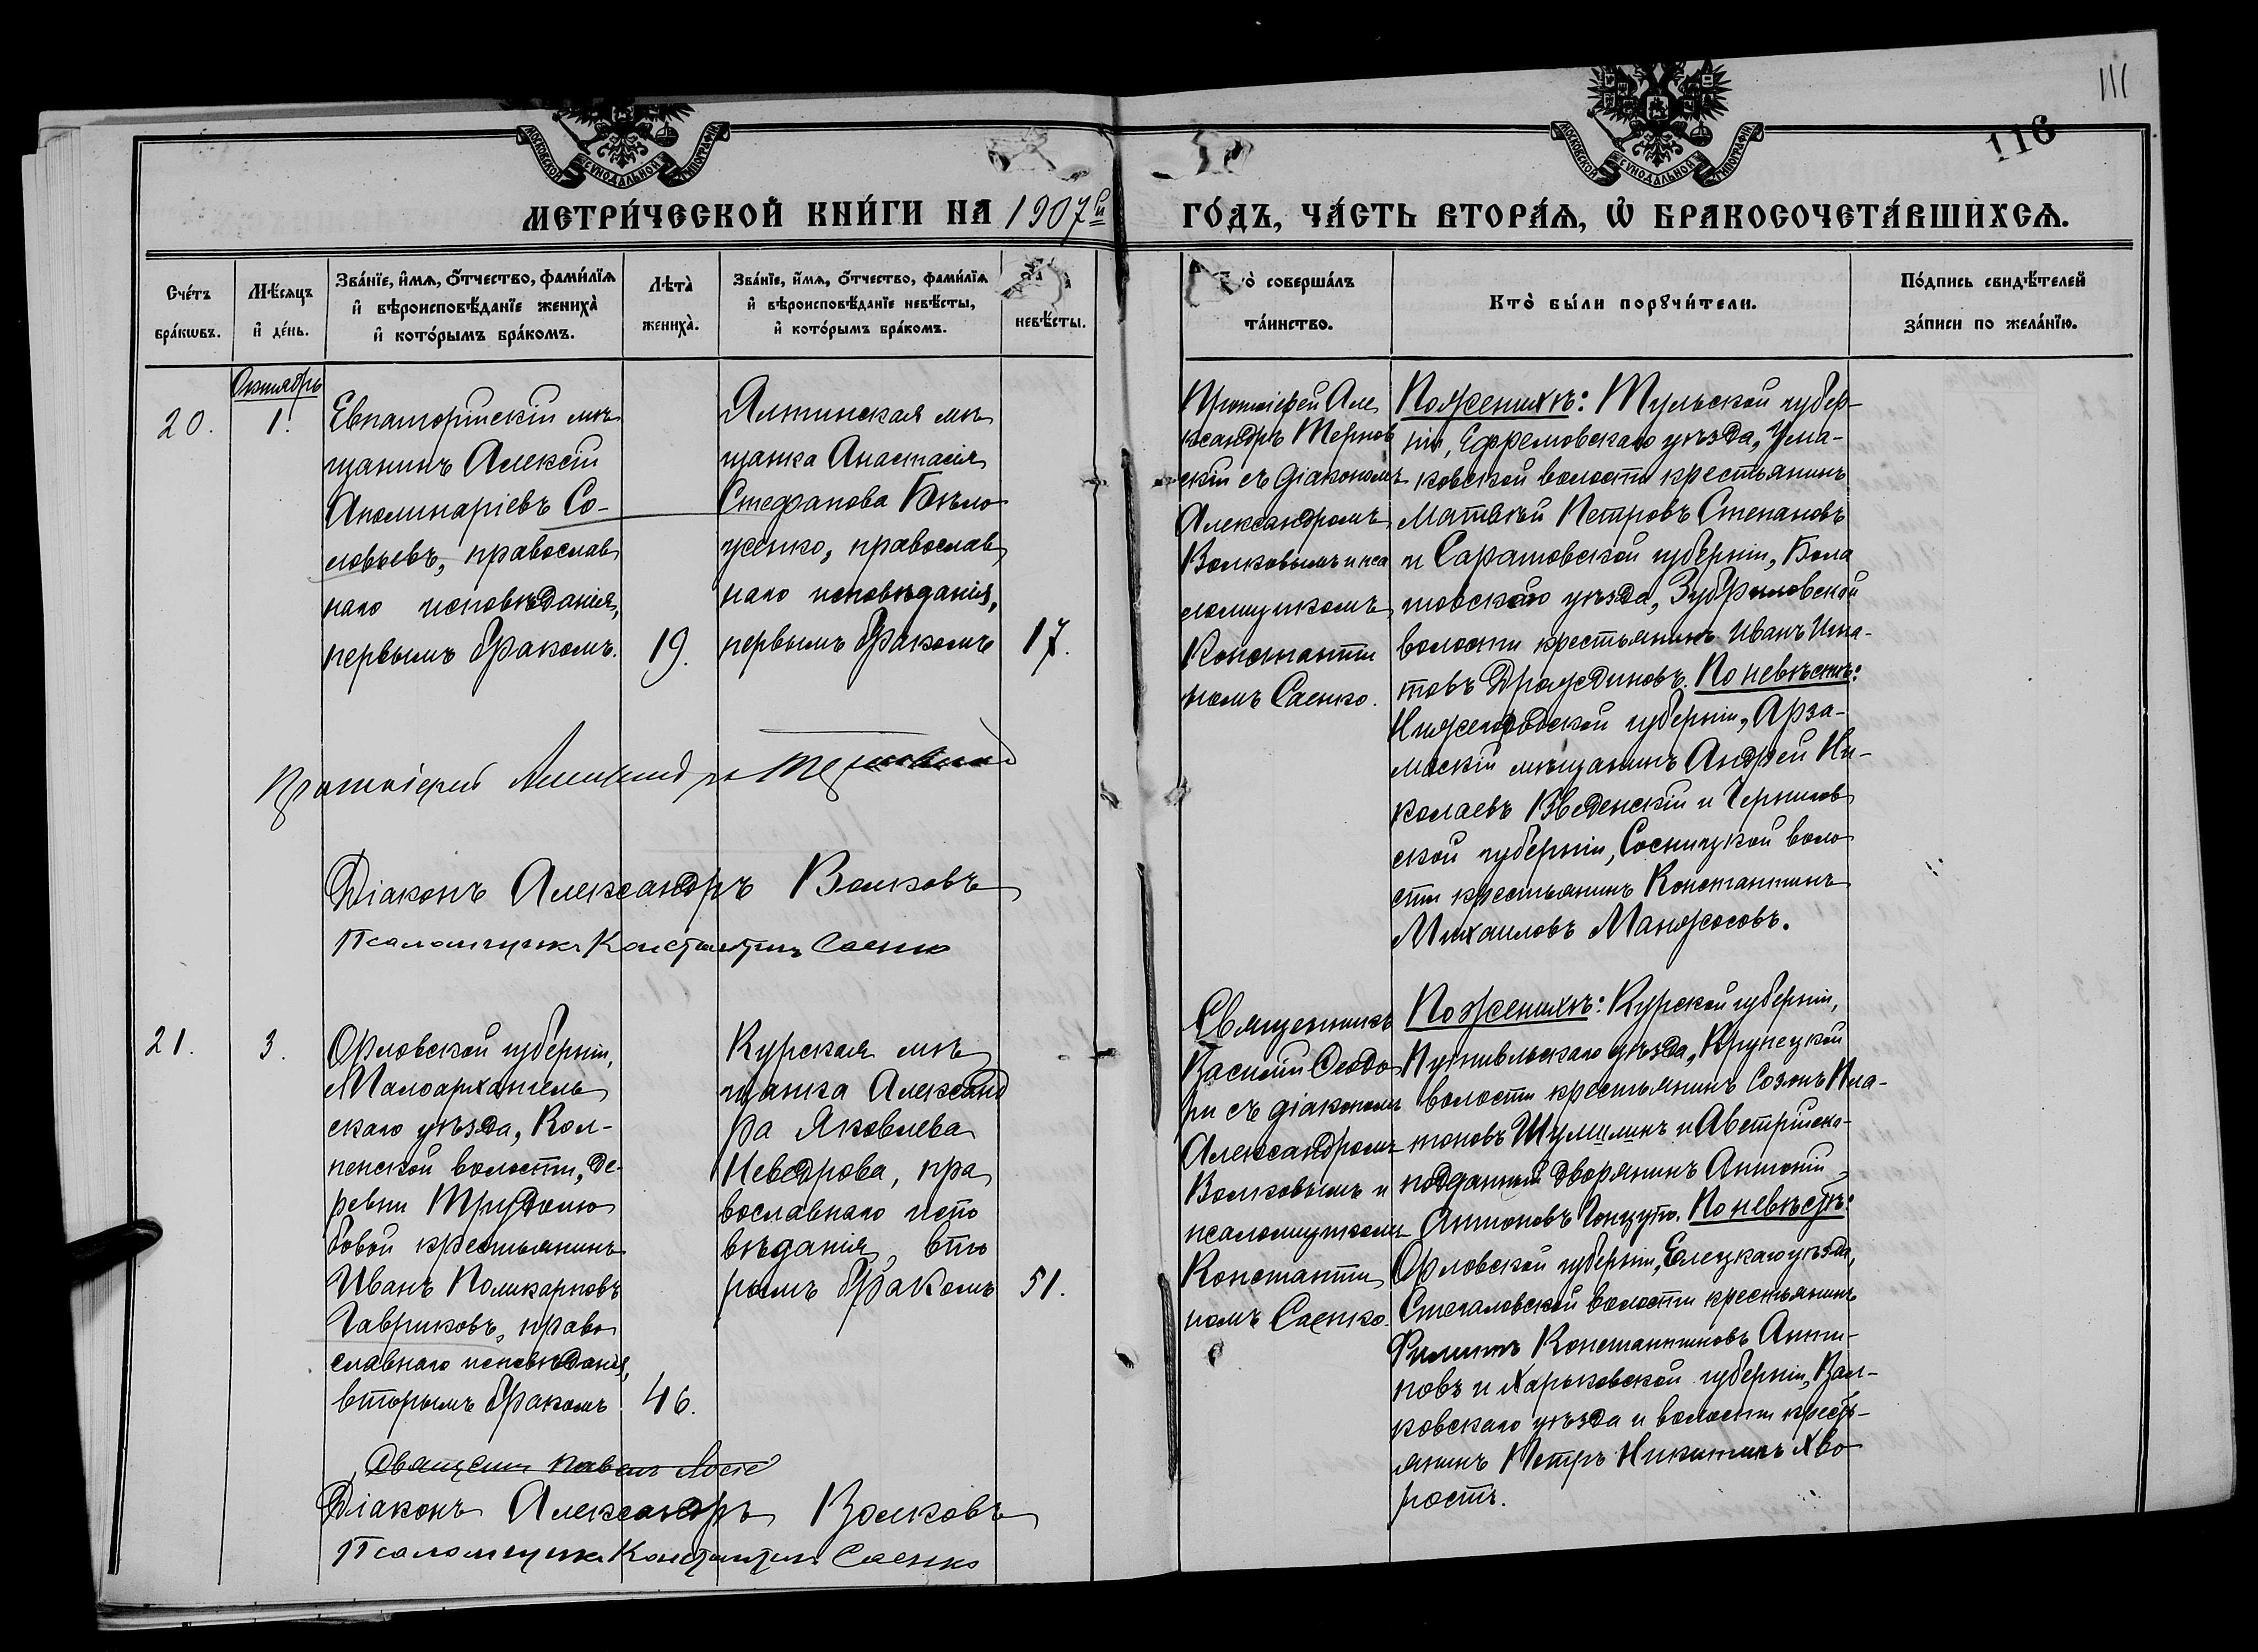 111
116
МОСКОВСКОЙ СѴНОДАЛЬНОЙ ТИПОГРАФІИ
МОСКОВСКОЙ СѴНОДАЛЬНОЙ ТИПОГРАФІИ
МЕТРИ́ЧЕСКОЙ КНИ́ГИ НА 1907й
ГО́ДЪ, ЧА́СТЬ ВТОРА́Я, Ѡ БРАКОСОЧЕТА́ВШИХСЯ.
Сче́тъ
бра́кѡвъ.
Мѣ́сяцъ
и де́нь.
Зва́нїе, и́мя, ѻ́тчество, фами́лїя
и вѣроисповѣ́данїе жениха̀
и кото́рымъ бра́комъ.
Лѣта̀
жениха̀.
Зва́нїе, и́мя, ѻ́тчество, фами́лїя
и вѣроисповѣ́данїе невѣ́сты,
и кото́рымъ бра́комъ.
невѣ́сты.
соверша́лъ
та́инство.
Кто̀ бы́ли порꙋчи́тели.
По́дпись свидѣ́телей
за́писи по жела́нїю.
Октябрь
20.
1.
Евпаторійскій мѣ
щанинъ Алексій
Аполинаріевъ Со-
ловьевъ, православ
наго исповѣданія,
первымъ бракомъ.
19.
Ялтинская мѣ
щанка Анастасія
Стефанова Бѣло
женко, православ
наго исповѣданія,
первымъ бракомъ
17.
Протоіерей Але
ксандръ Тернов
скій съ діакономъ
Александромъ
Волковымъ и пса
ломщикомъ
Константи
номъ Саенко.
По женихѣ: Тульской губер-
ніи, Ефремовскаго уѣзда,
ковской волости крестьянинъ
Матвѣй Петровъ Степановъ
и Саратовской губерніи, Бала
шовскаго уѣзда, Зубриловской
волости крестьянинъ Иванъ Игна-
товъ Дрождиновъ. По невѣстѣ:
Нижегородской губерніи, Арза-
маскій мѣщанинъ Андрей Ни-
колаевъ Введенскій и Чернигов
ской губерніи, Сосницкой воло
сти крестьянинъ Константинъ
Михаиловъ Манжосовъ.
Протоіерей Александръ Терновскій
Діаконъ Александръ Волковъ
Псаломщикъ Константинъ Саенко
21.
3.
Орловской губерніи,
Малоархангель
скаго уѣзда, Кол-
пенской волости, де-
ревни Тридоло
бовой крестьянинъ
Иванъ Поликарповъ
Гавриковъ, право
славнаго исповѣданія,
вторымъ бракомъ
46.
Курская мѣ
щанка Александ
ра Яковлева
Неведрова, пра
вославнаго испо
вѣданія, вто
рымъ бракомъ
51.
Священникъ
Василій Ѳеодо
ри съ діакономъ
Александромъ
Волковымъ и
псаломщикомъ
Константи
номъ Саенко.
По женихѣ: Курской губерніи,
Путивльскаго уѣзда, Крупецкой
волости крестьянинъ Созонъ Пла-
тоновъ Шумилинъ и Австрійско-
подданный дворянинъ Антоній
Антоновъ По невѣстѣ:
Орловской губерніи, Елецкаго уѣзда,
Стегаловской волости крестьянинъ
Филиппъ Константиновъ Анти-
повъ и Харьковской губерніи, Вал-
ковскаго уѣзда и волости кресть-
янинъ Петръ Никитинъ Хво
ростъ.
Діаконъ Александръ Волковъ
Псаломщикъ Константинъ Саенко